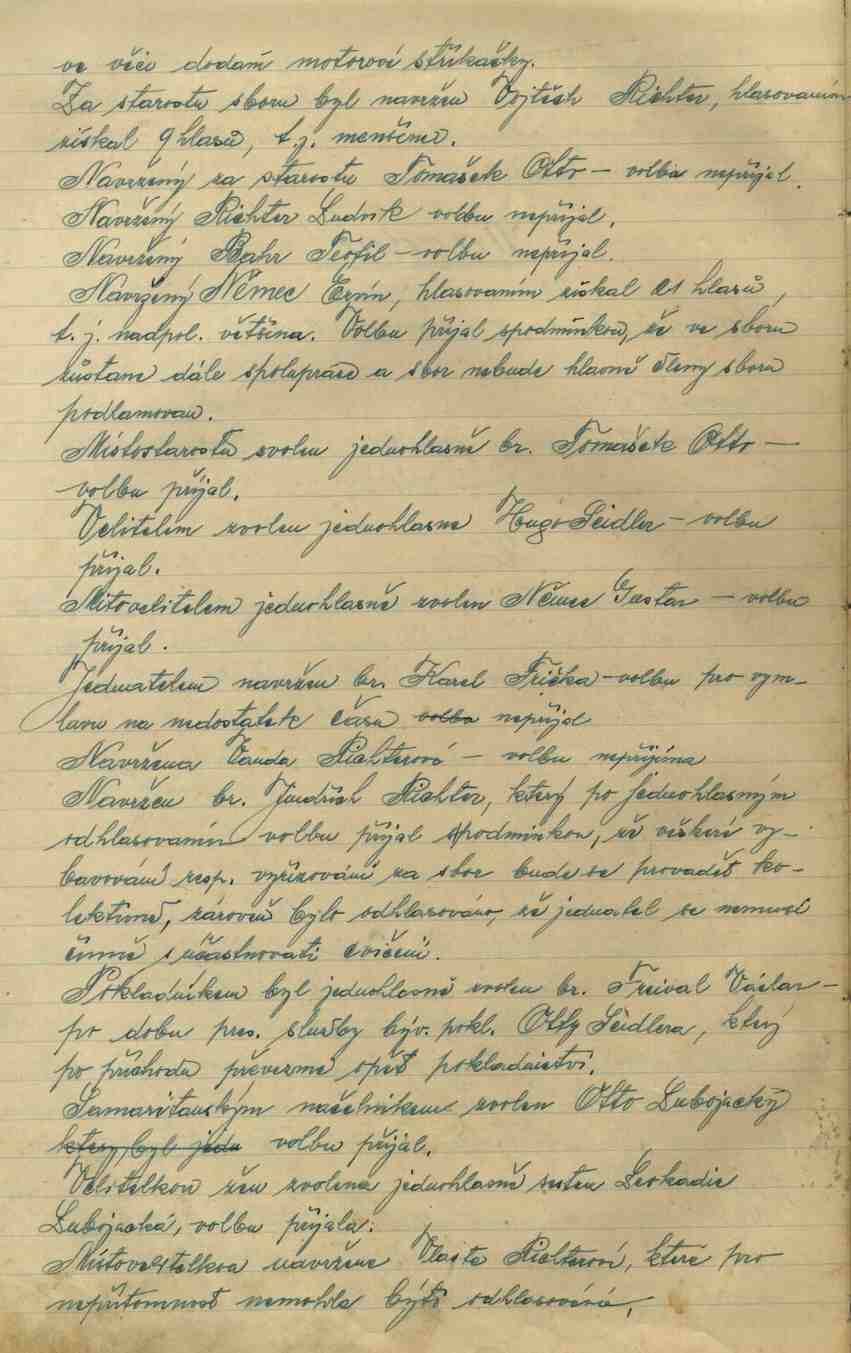 ve věci dodaní motorové stříkačky.
Za starostu sboru byl navržen Vojtěch Richter, hlasovaním
získal 9 hlasů, t.j. menšinu.
Navržený za starostu Tomašek Otto – volbu nepřijal.
Navržený Richter Ludvík volbu nepřijal.
Navržený Bahr Teofil – volbu nepřijal.
Navržený Němec Ervín, hlasovaním získal 21 hlasů,
t.j. nadpol. většina. Volbu přijal spodmínkou, že ve sboru
zůstane dále spolupráce a sbor nebude hlavně členy sboru
podlamovan.
Místostarosta zvolen jednohlasně br. Tomašek Otto –
volbu přijal.
Velitelem zvolen jednohlasne Hugo Seidler – volbu
přijal.
Mítovelitelem jednohlasně zvolen Němec Gustav – volbu
přijal.
Jednatelem navržen br. Karel Frička – volbu pro vym-
luvu na nedostatek času volbu nepřijal
Navržena Vanda Richterová – volbu nepřijíma
Navržen br. Jindřich Richter, který po jednohlasným
odhlasovaním volbu přijal spodmínkou, že veškeré vy-
bavování resp. vyřizování za sbor bude se provadět ko-
lektivně, zároveň bylo odhlasováno, že jednatel se nemusí
činně súčastnovati cvičení.
Pokladníkem byl jednohlasně zvolen br. Freival Václav –
po dobu pres. služby býv. pokl. Otty Seidlera, který
po příchodu převezme opět pokladnictví.
Samaritanským načelníkem zvolen Otto Lubojacký
ktery byl jedn volbu přijal.
Velitelkou žen zvolena jednohlasně sestra Leokadie
Lubojacká, volbu přijala.
Místovelitelkou navržena Vlasta Richterová, které pro
nepřítomnost nemohla býti odhlasováná,